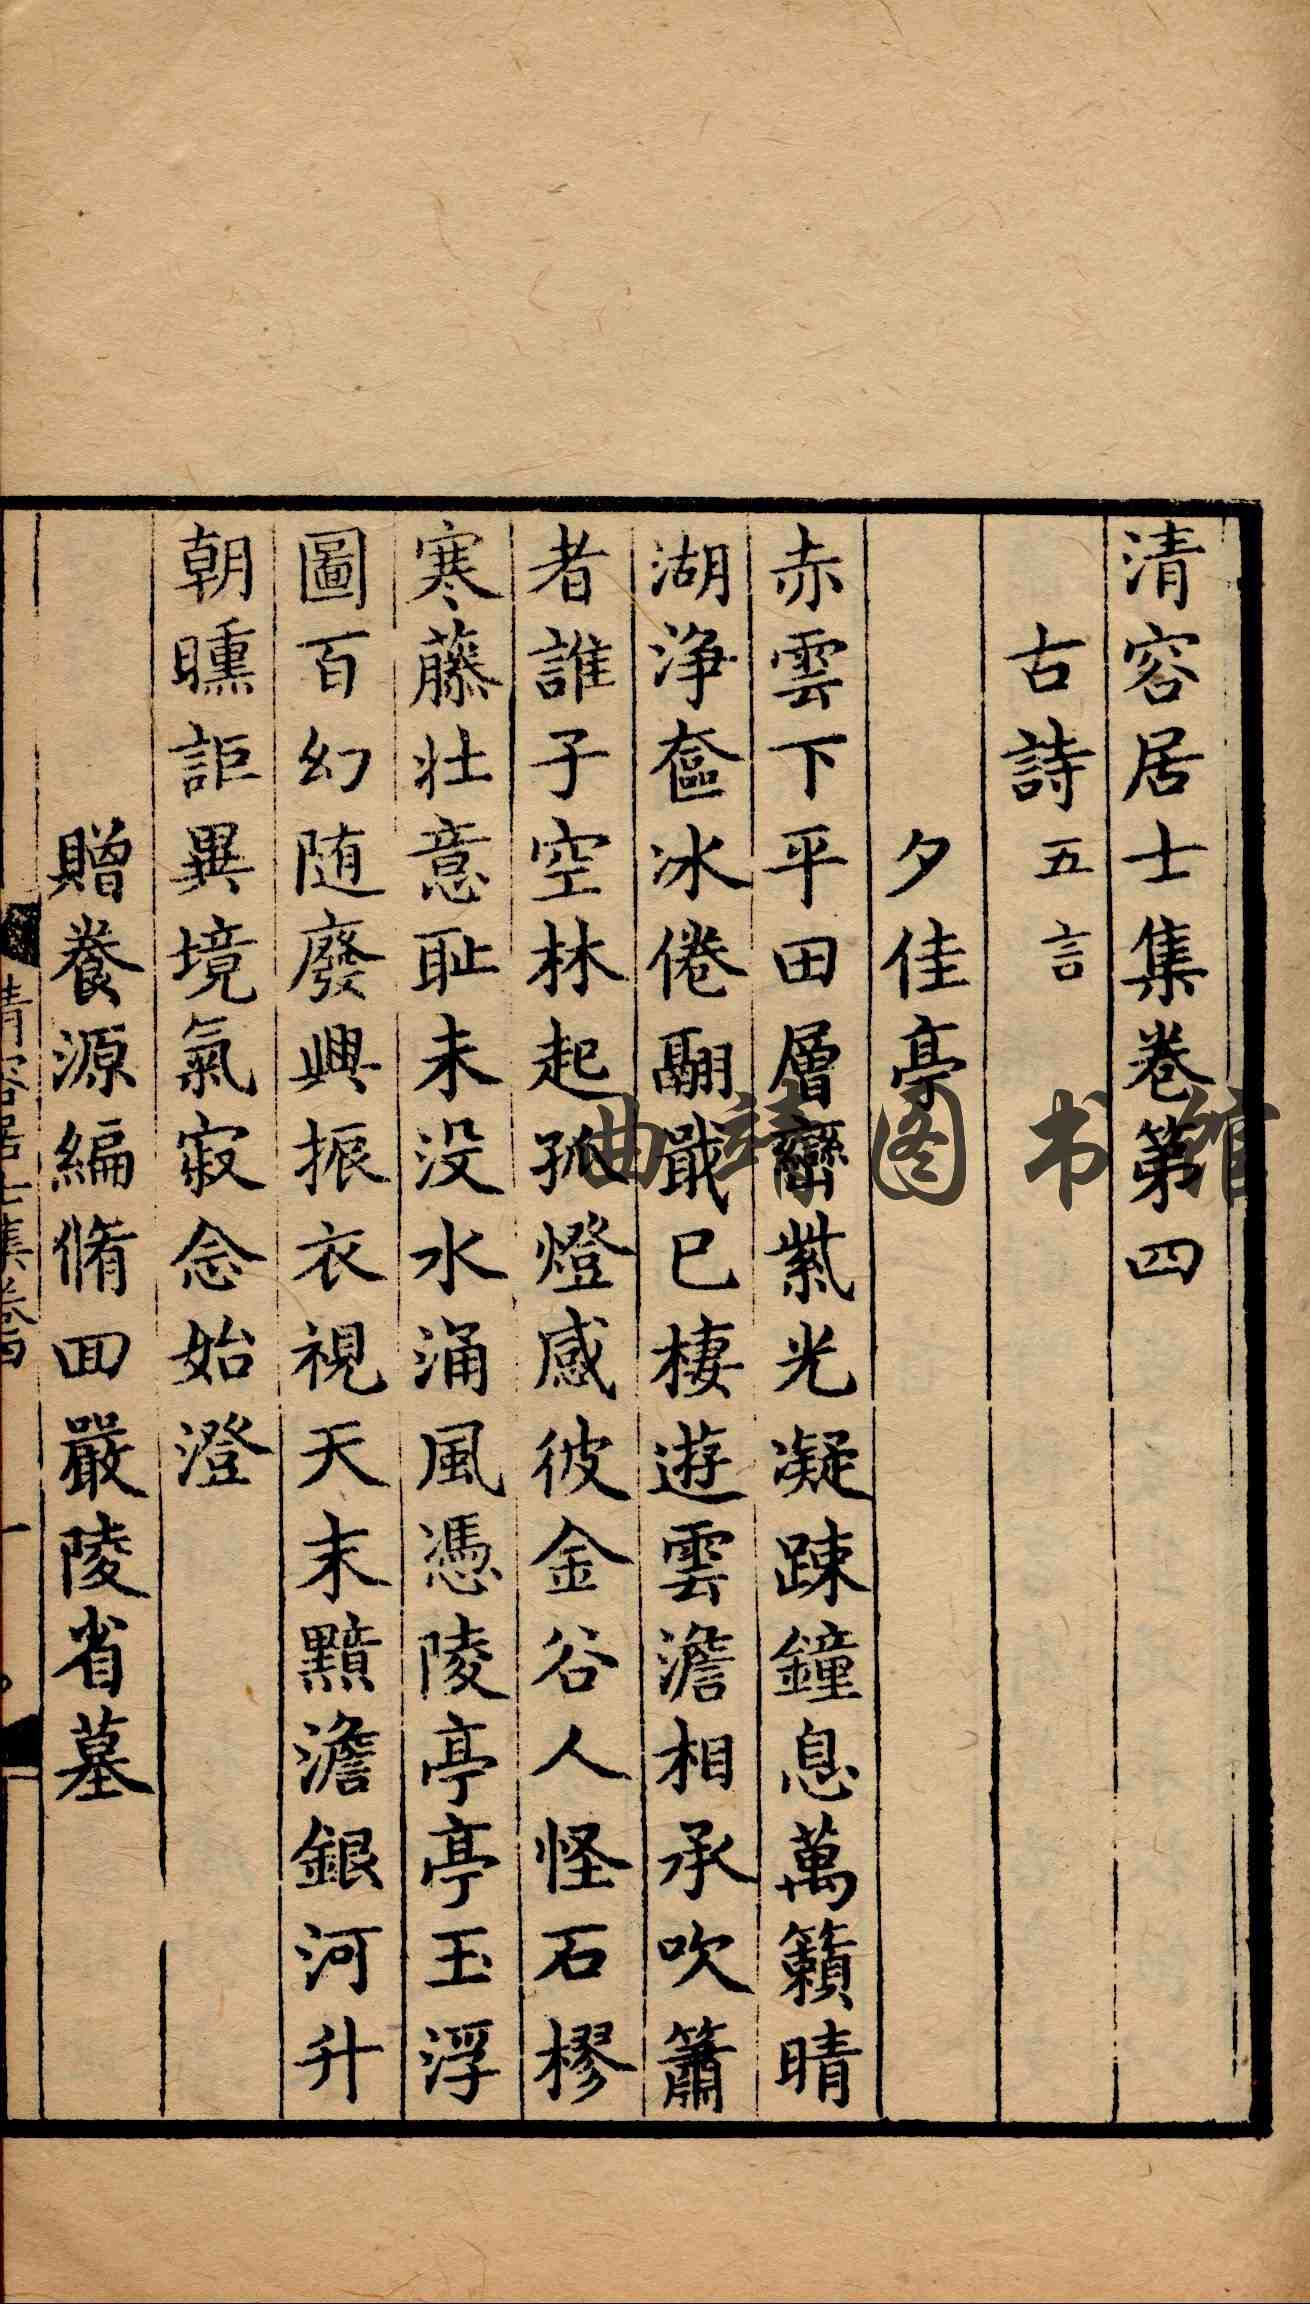 清容居士集卷第四
古詩五言
夕佳亭
赤雲下平田層巒紫光凝踈鐘息萬籟晴
湖浄奩冰倦翮戢已棲遊雲澹相承吹簫
者誰子空林起孤燈感彼金谷人怪石樛
寒藤壮意耻未没水涌風憑陵亭亭玉浮
圖百幻随廢興振衣視天末黯澹銀河升
朝曛詎異境氣寂念始澄
贈養源編脩回嚴陵省墓
清容居士集卷四
一
曲靖图书馆